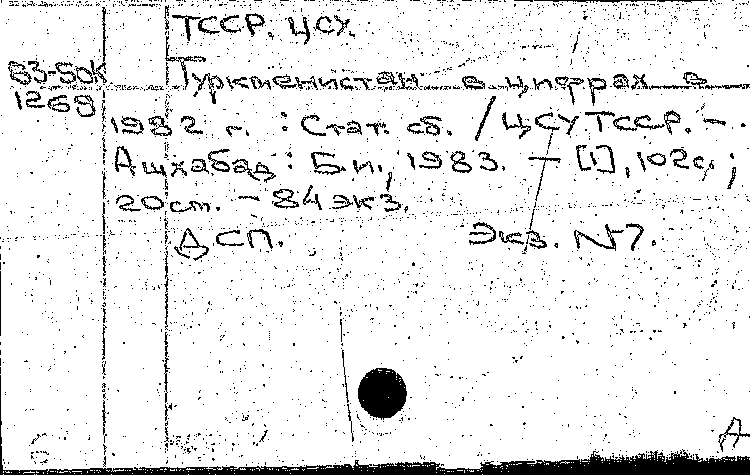 ТССР. ЦСУ.
83-50К
1269
Туркменистан в цифрах в
1982 г. : Стат. сб. / ЦСУ ТССР. -.
Ашхабад : Б.и., 1983. - [1], 102 с. ;
20 см. - 84 экз.
ДСП. Экз. N7.
А